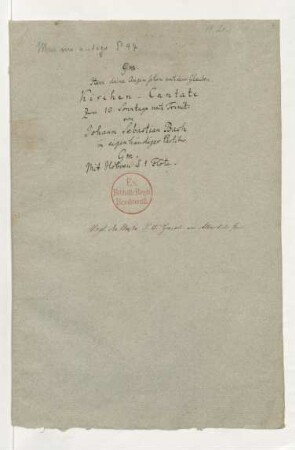 Mus. ms. autogr. P 47
Gm.
Herr deine Augen sehen nach dem Glauben.
Kirchen-Cantate
Zum 10 Sonntage nach Trinit:
von
Johann Sebastian Bach
in eigenhändiger Partitur
Gm.
Mit Hoboen & 1 Flöte.
Ex
Biblioth. Regia
Berolinensi.